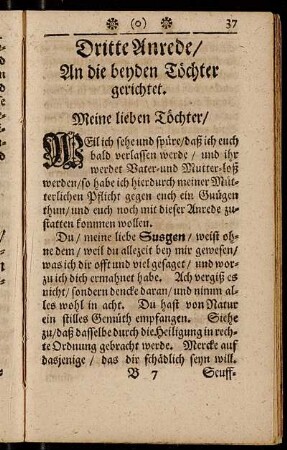 (o) 37
Dritte Anrede/
An die beyden Töchter
gerichtet.
Meine lieben Töchter/
WEil ich sehe und spüre/daß ich euch
bald verlassen werde / und ihr
werdet Vater-und Mutter-loß
werden/so habe ich hierdurch meiner Müt-
terlichen Pflicht gegen euch ein Gnügen
thun/und euch noch mit dieser Anrede zu-
statten kommen wollen.
Du/ meine liebe Susgen/ weist oh-
ne dem/ weil du allezeit bey mir gewesen/
was ich dir offt und viel gesaget/ und wor-
zu ich dich ermahnet habe. Ach vergiß es
nicht/ sondern dencke daran/ und nimm al-
les wohl in acht. Du hast von Natur
ein stilles Gemüth empfangen. Siehe
zu/daß dasselbe durch die Heiligung in rech-
te Ordnung gebracht werde. Mercke auf
dasjenige / das dir schädlich seyn will.
B 7 Seuff-